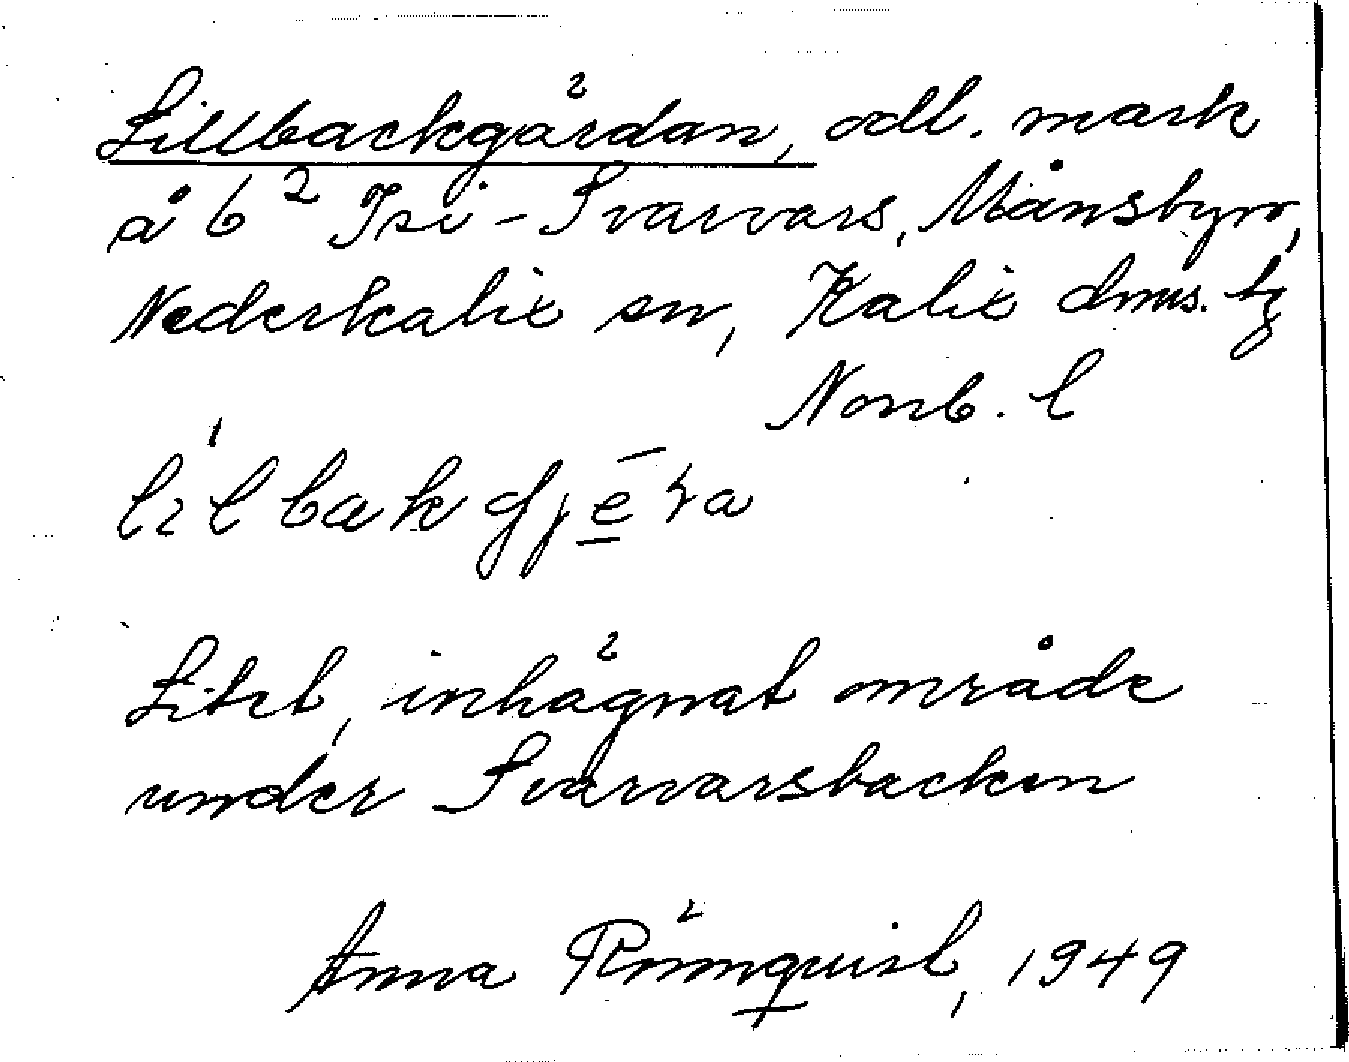 Lillbackgärdan, odl. mark
å 6² Isi-Svarvars, Månsbyn,
Nederkalix sn, Kalix dms. tg
Norrb. l
lɩlbakgjeṛa
Litet, inhägnat område
under Svarvarsbacken
Anna Rönnquist, 1949